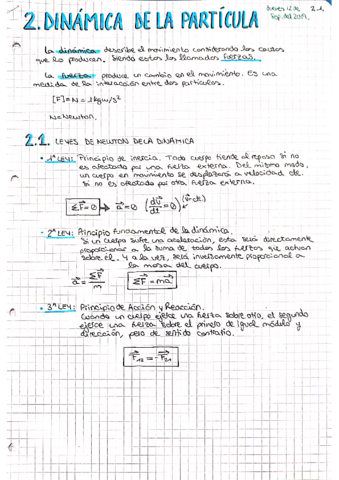 2. DINÁMICA DE LA PARTÍCULA
Jueves 12 de
Sep. del 2019.
2.1
La dinámica describe el movimiento considerando las causas
que lo producen. Siendo estas las llamadas fuerzas.
La fuerza produce un cambio en el movimiento. Es una
medida de la interacción entre dos partículas.
[F] = N = 1kg m/s²
N = Newton.
2.1. LEYES DE NEWTON DE LA DINÁMICA
• 1ª LEY: Principio de inercia. Todo cuerpo tiende al reposo si no
es afectado por una fuerza externa. Del mismo modo,
un cuerpo en movimiento se desplazará a velocidad cte.
si no es afectado por otra fuerza externa.
ΣF = 0 → a = 0 (dv/dt = 0) (v=cte.)
• 2ª LEY: Principio fundamental de la dinámica.
Si un cuerpo sufre una aceleración, esta será directamente
proporcional a la suma de todas las fuerzas que actúan
sobre él. Y a la vez, será inversamente proporcional a
la masa del cuerpo.
a = ΣF/m ΣF = ma
• 3ª LEY: Principio de Acción y Reacción.
Cuando un cuerpo ejerce una fuerza sobre otro, el segundo
ejerce una fuerza sobre el primero de igual módulo y
dirección, pero de sentido contrario.
F₁₂ = -F₂₁